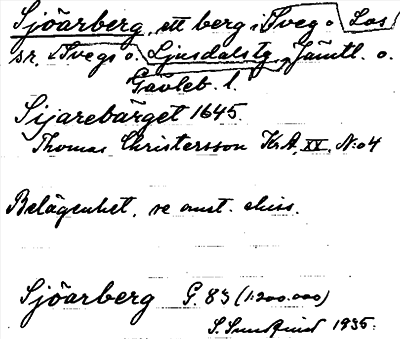 Sjöarberg, ett berg i Sveg o. Los
sr. i Svegs o. Ljusdals tg, Jämtl. o.
Gävleb. l.
Sijarebärget 1645.
Thomas Christersson KrA, XX, N:o 4
Belägenhet, se omst. diss.
Sjöarberg G. 83 (1:200.000)
S. Sundqvist 1935.